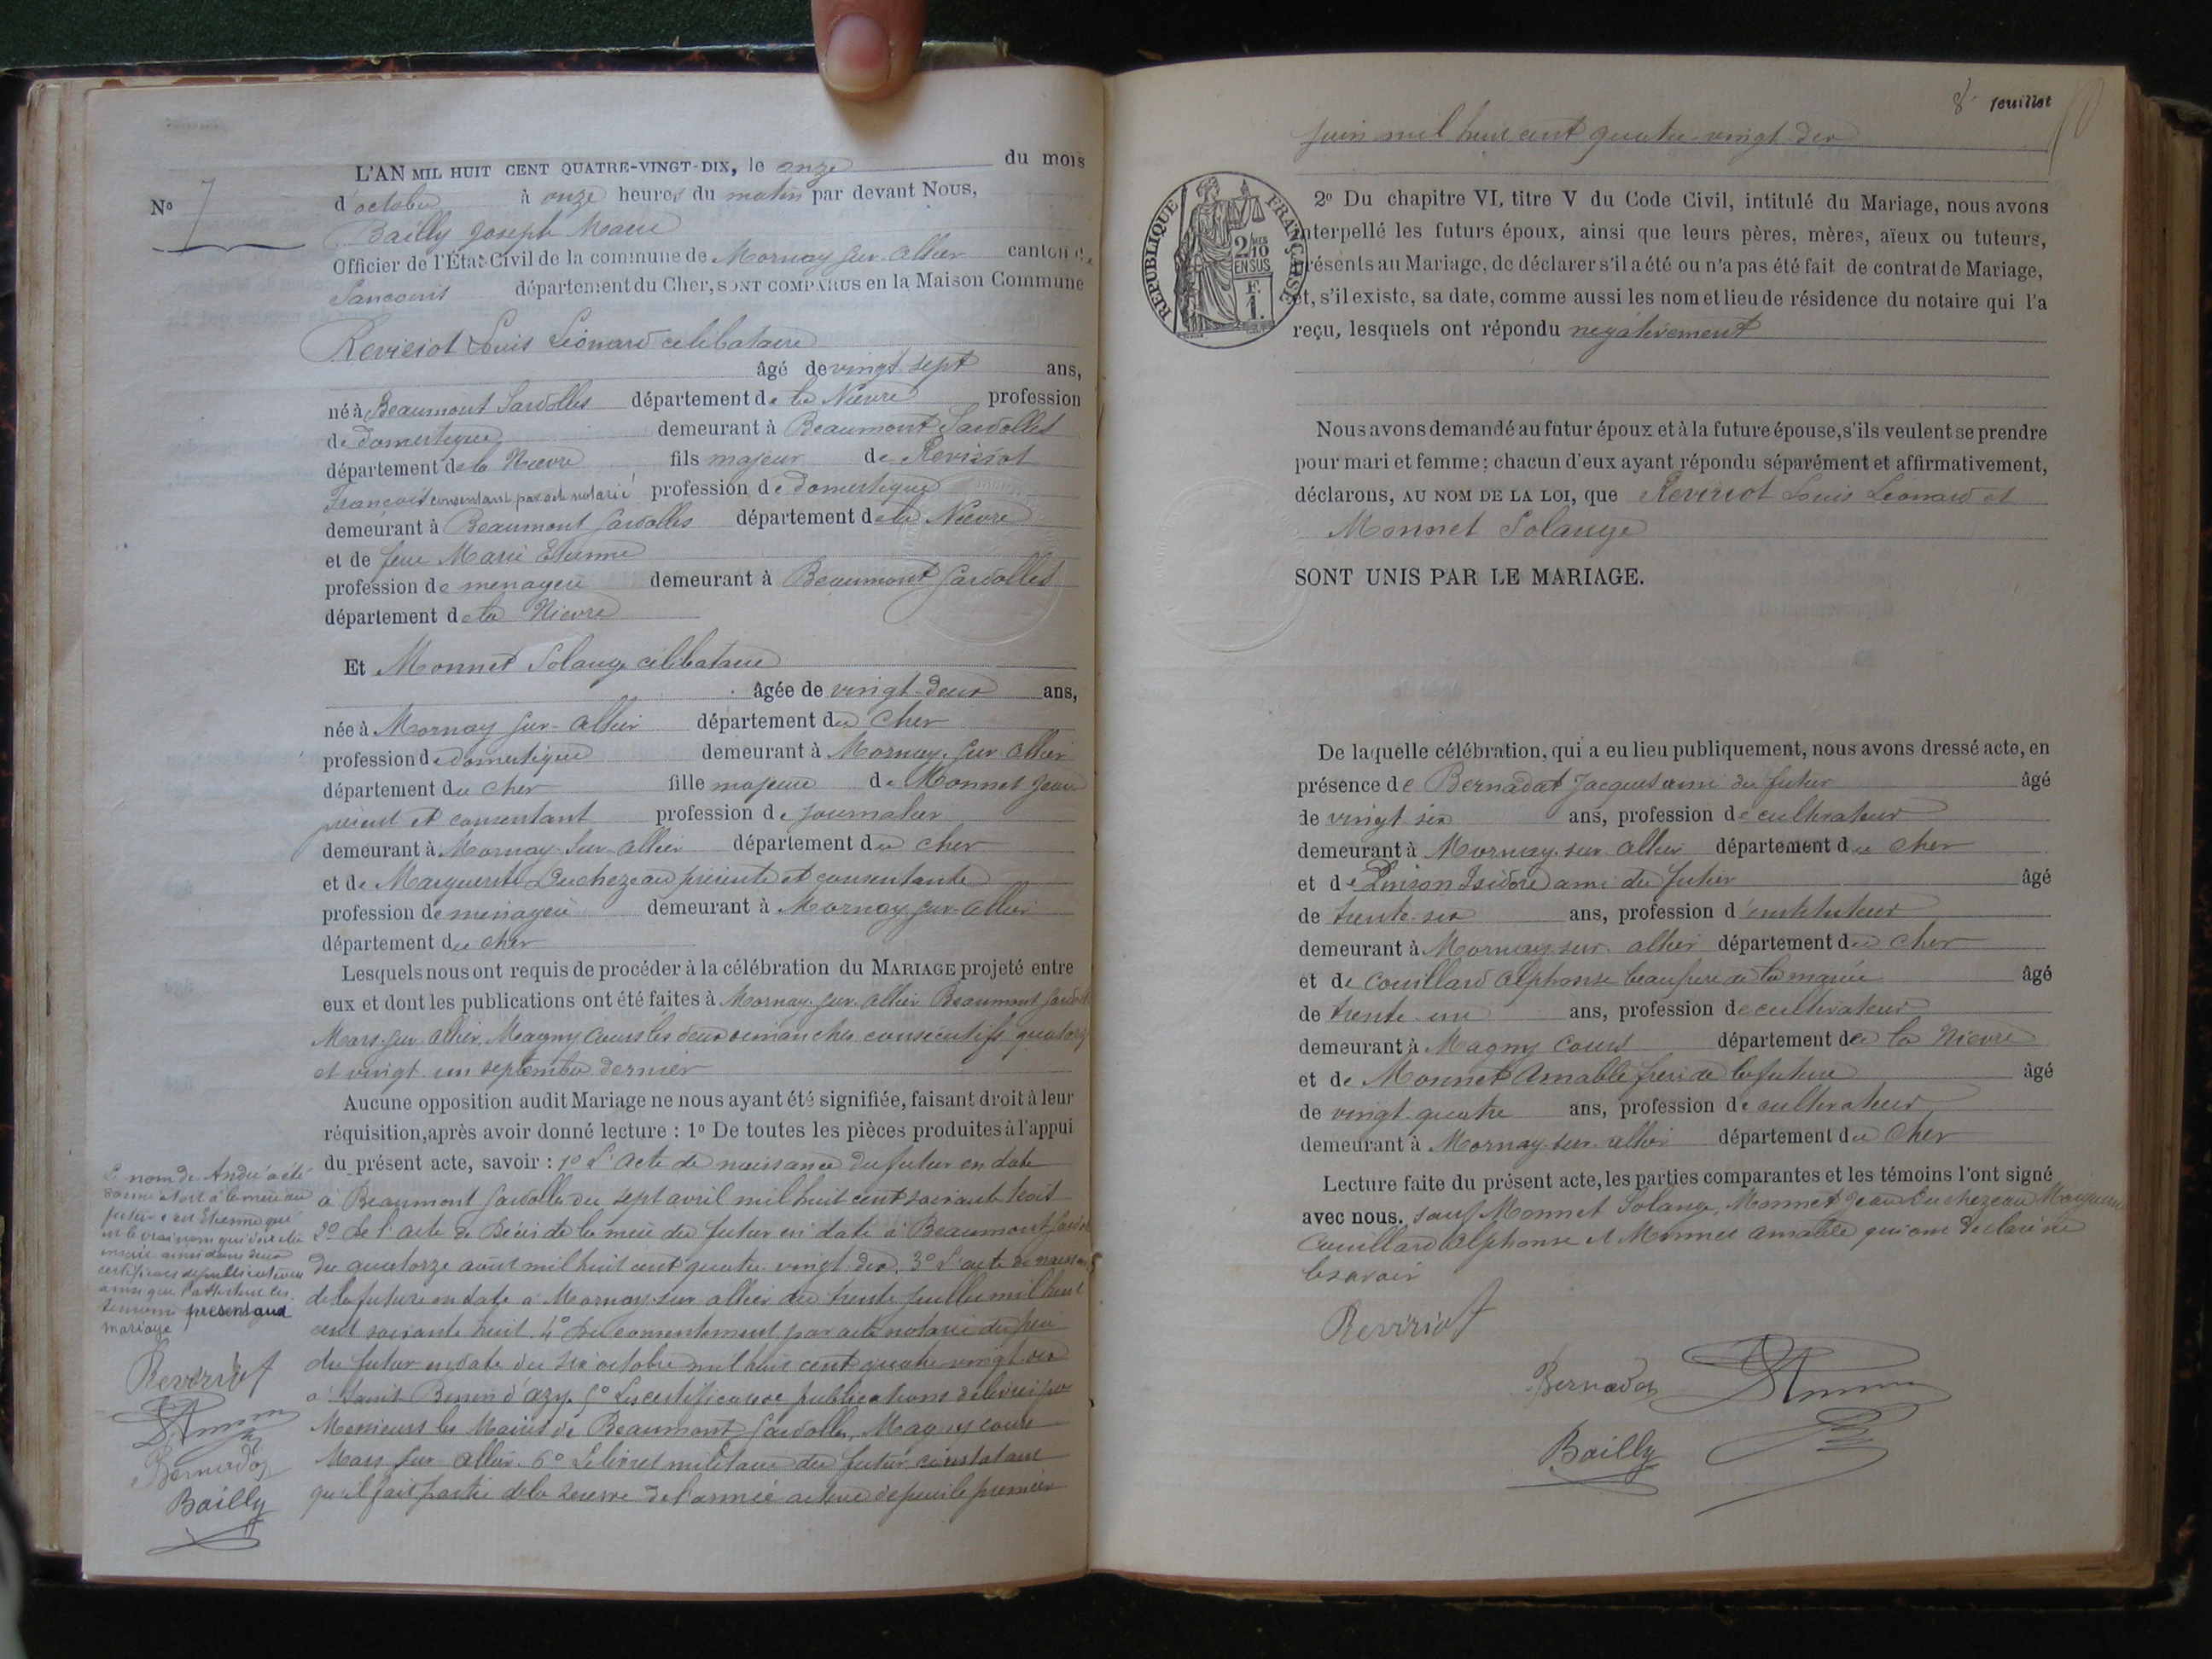 L'AN MIL HUIT CENT QUATRE-VINGT-DIX, le onze du mois
N° 7
d'octobre à onze heures du matin par devant Nous,
Bailly Joseph Maire
Officier de l'État-Civil de la commune de Mornay sur Allier canton de
Sancoins département du Cher, SONT COMPARUS en la Maison Commune
Reviriot Louis Léonard célibataire
âgé de vingt sept ans,
né à Beaumont Sardolles département de la Nièvre profession
de domestique demeurant à Beaumont Sardolles
département de la Nièvre fils majeur de Reviriot
François consentant par acte notarié profession de domestique
demeurant à Beaumont Sardolles département de la Nièvre
et de feue Marie Etienne
profession de ménagère demeurant à Beaumont Sardolles
département de la Nièvre
Et Monnet Solange célibataire
âgée de vingt-deux ans,
née à Mornay sur-Allier département du Cher
profession de domestique demeurant à Mornay-sur-Allier
département du Cher fille majeure de Monnet Jean
présent et consentant profession de journalier
demeurant à Mornay-sur-Allier département du Cher
et de Marguerite Duchezeau présente et consentante
profession de ménagère demeurant à Mornay sur-Allier
département du Cher
Lesquels nous ont requis de procéder à la célébration du MARIAGE projeté entre
eux et dont les publications ont été faites à Mornay-sur-Allier Beaumont Sardolles
Mars-sur-Allier, Magny Cours les deux dimanches consécutifs quatorze
et vingt un septembre dernier
Aucune opposition audit Mariage ne nous ayant été signifiée, faisant droit à leur
réquisition, après avoir donné lecture : 1° De toutes les pièces produites à l'appui
du présent acte, savoir : 1° L'acte de naissance du futur en date
à Beaumont Sardolles du sept avril mil huit cent soixante trois
2° de l'acte de décès de la mère du futur en date à Beaumont Sardolles
du quatorze août mil huit cent quatre vingt dix. 3° L'acte de naissance
de la future en date à Mornay sur allier du trente juillet mil huit
cent soixante huit. 4° Du consentement par acte notarié du père
du futur en date du six octobre mil huit cent quatre-vingt-dix
à Saint Benin d'Azy. 5° Les certificats de publications délivrés par
Messieurs les Maires de Beaumont Sardolles, Magny cours
Mars sur allier. 6° Le livret militaire du futur constatant
qu'il fait partie de la réserve de l'armée active depuis le premier
Le nom de André a été
donné à tort à la mère du
futur c'est Etienne qui
est le vrai nom qui doit être
inscrit ainsi dans deux
certificats de publications
ainsi que l'attestent les
témoins présents au
mariage
Reviriot
Bernadat
Bailly
8e feuillet
juin mil huit cent quatre-vingt-dix
RÉPUBLIQUE FRANÇAISE
2/10 EN SUS
F. 1.
2° Du chapitre VI, titre V du Code Civil, intitulé du Mariage, nous avons
interpellé les futurs époux, ainsi que leurs pères, mères, aïeux ou tuteurs,
présents au Mariage, de déclarer s'il a été ou n'a pas été fait de contrat de Mariage,
et, s'il existe, sa date, comme aussi les nom et lieu de résidence du notaire qui l'a
reçu, lesquels ont répondu négativement
Nous avons demandé au futur époux et à la future épouse, s'ils veulent se prendre
pour mari et femme ; chacun d'eux ayant répondu séparément et affirmativement,
déclarons, AU NOM DE LA LOI, que Reviriot Louis Léonard et
Monnet Solange
SONT UNIS PAR LE MARIAGE.
De laquelle célébration, qui a eu lieu publiquement, nous avons dressé acte, en
présence de Bernadat Jacques ami du futur âgé
de vingt six ans, profession de cultivateur
demeurant à Mornay-sur-Allier département du Cher
et de Isidore ami du futur âgé
de trente-six ans, profession d'instituteur
demeurant à Mornay sur allier département du Cher
et de Couillard Alphonse beau frère de la mariée âgé
de trente un ans, profession de cultivateur
demeurant à Magny Cours département de la Nièvre
et de Monnet Amable frère de la future âgé
de vingt-quatre ans, profession de cultivateur
demeurant à Mornay-sur-allier département du Cher
Lecture faite du présent acte, les parties comparantes et les témoins l'ont signé
avec nous. sauf Monnet Solange, Monnet Jean Duchezeau Marguerite
Couillard Alphonse et Monnet Amable qui ont déclaré ne
le savoir
Reviriot
Bernadat
Bailly